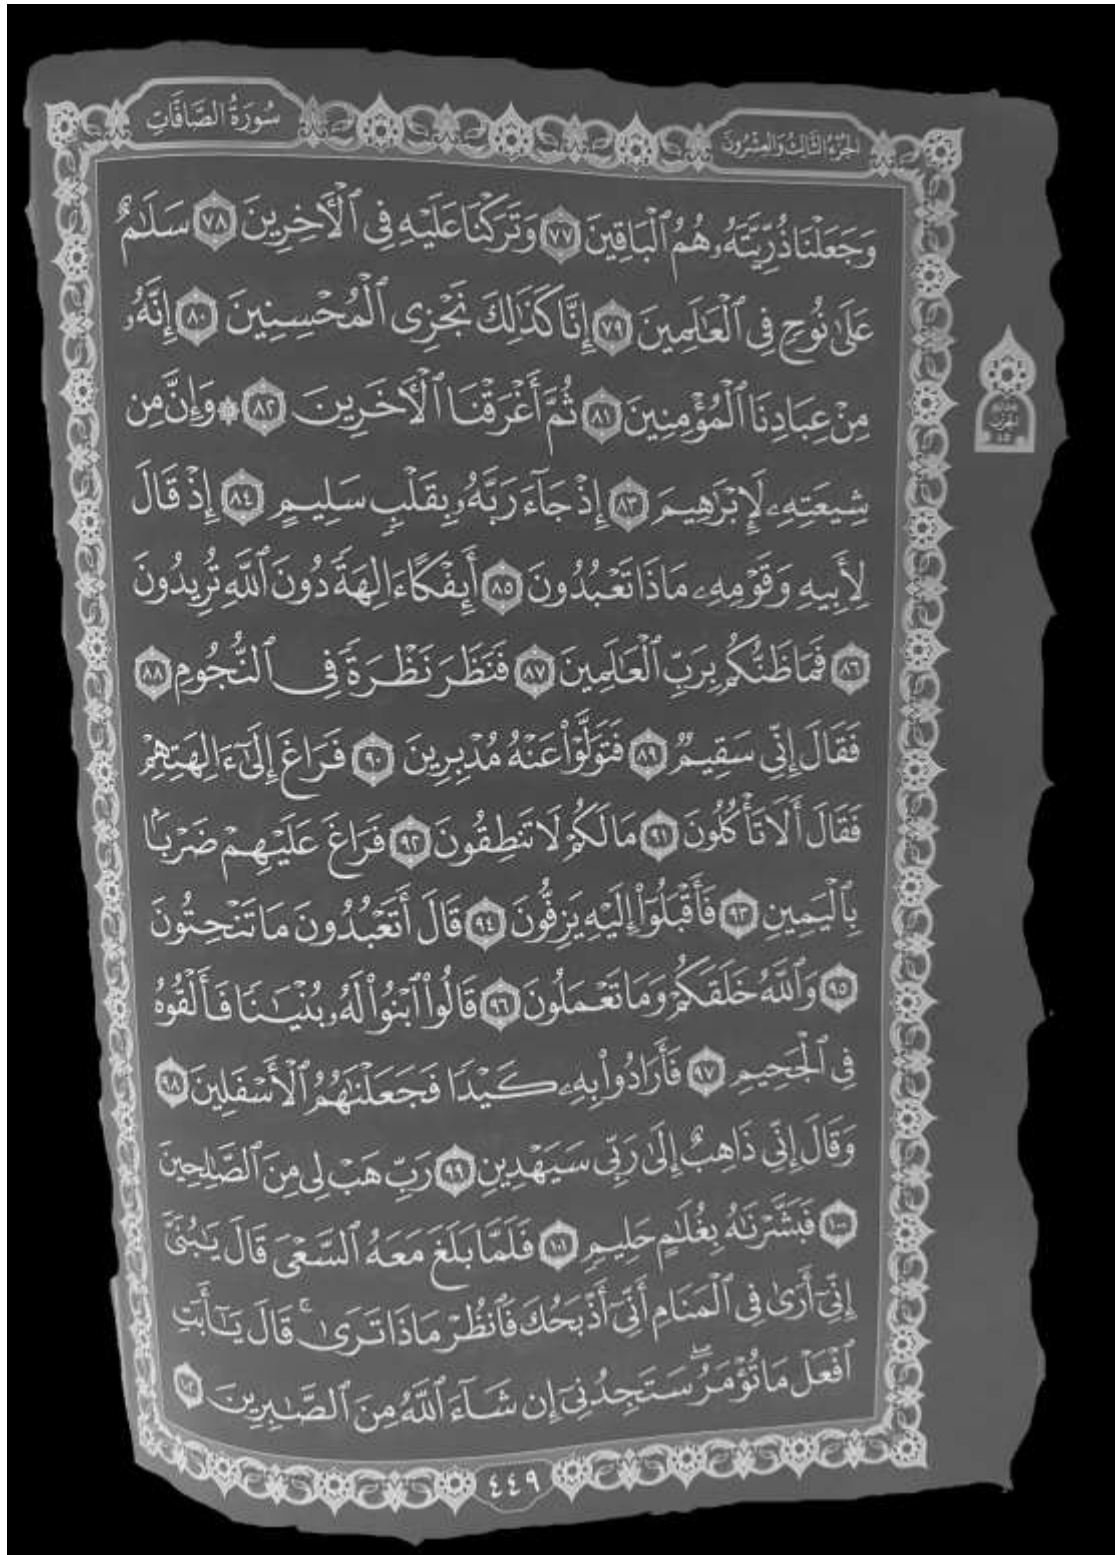 الجزء الثالث والعشرون
سورة الصافات
وَجَعَلْنَا ذُرِّيَّتَهُۥ هُمُ ٱلْبَاقِينَ ٧٧ وَتَرَكْنَا عَلَيْهِ فِى ٱلْأَخِرِينَ ٧٨ سَلَٰمٌ
عَلَىٰ نُوحٍ فِى ٱلْعَٰلَمِينَ ٧٩ إِنَّا كَذَٰلِكَ نَجْزِى ٱلْمُحْسِنِينَ ٨٠ إِنَّهُۥ
مِنْ عِبَادِنَا ٱلْمُؤْمِنِينَ ٨١ ثُمَّ أَغْرَقْنَا ٱلْأَخَرِينَ ٨٢ ۞ وَإِنَّ مِن
شِيعَتِهِۦ لَإِبْرَٰهِيمَ ٨٣ إِذْ جَآءَ رَبَّهُۥ بِقَلْبٍ سَلِيمٍ ٨٤ إِذْ قَالَ
لِأَبِيهِ وَقَوْمِهِۦ مَاذَا تَعْبُدُونَ ٨٥ أَئِفْكًا ءَالِهَةً دُونَ ٱللَّهِ تُرِيدُونَ
٨٦ فَمَا ظَنُّكُم بِرَبِّ ٱلْعَٰلَمِينَ ٨٧ فَنَظَرَ نَظْرَةً فِى ٱلنُّجُومِ ٨٨
فَقَالَ إِنِّى سَقِيمٌ ٨٩ فَتَوَلَّوْا۟ عَنْهُ مُدْبِرِينَ ٩٠ فَرَاغَ إِلَىٰٓ ءَالِهَتِهِمْ
فَقَالَ أَلَا تَأْكُلُونَ ٩١ مَا لَكُمْ لَا تَنطِقُونَ ٩٢ فَرَاغَ عَلَيْهِمْ ضَرْبًۢا
بِٱلْيَمِينِ ٩٣ فَأَقْبَلُوٓا۟ إِلَيْهِ يَزِفُّونَ ٩٤ قَالَ أَتَعْبُدُونَ مَا تَنْحِتُونَ
٩٥ وَٱللَّهُ خَلَقَكُمْ وَمَا تَعْمَلُونَ ٩٦ قَالُوا۟ ٱبْنُوا۟ لَهُۥ بُنْيَٰنًا فَأَلْقُوهُ
فِى ٱلْجَحِيمِ ٩٧ فَأَرَادُوا۟ بِهِۦ كَيْدًا فَجَعَلْنَٰهُمُ ٱلْأَسْفَلِينَ ٩٨
وَقَالَ إِنِّى ذَاهِبٌ إِلَىٰ رَبِّى سَيَهْدِينِ ٩٩ رَبِّ هَبْ لِى مِنَ ٱلصَّٰلِحِينَ
١٠٠ فَبَشَّرْنَٰهُ بِغُلَٰمٍ حَلِيمٍ ١٠١ فَلَمَّا بَلَغَ مَعَهُ ٱلسَّعْىَ قَالَ يَٰبُنَىَّ
إِنِّىٓ أَرَىٰ فِى ٱلْمَنَامِ أَنِّىٓ أَذْبَحُكَ فَٱنظُرْ مَاذَا تَرَىٰ ۚ قَالَ يَٰٓأَبَتِ
ٱفْعَلْ مَا تُؤْمَرُ ۖ سَتَجِدُنِىٓ إِن شَآءَ ٱللَّهُ مِنَ ٱلصَّٰبِرِينَ ١٠٢
٤٤٩